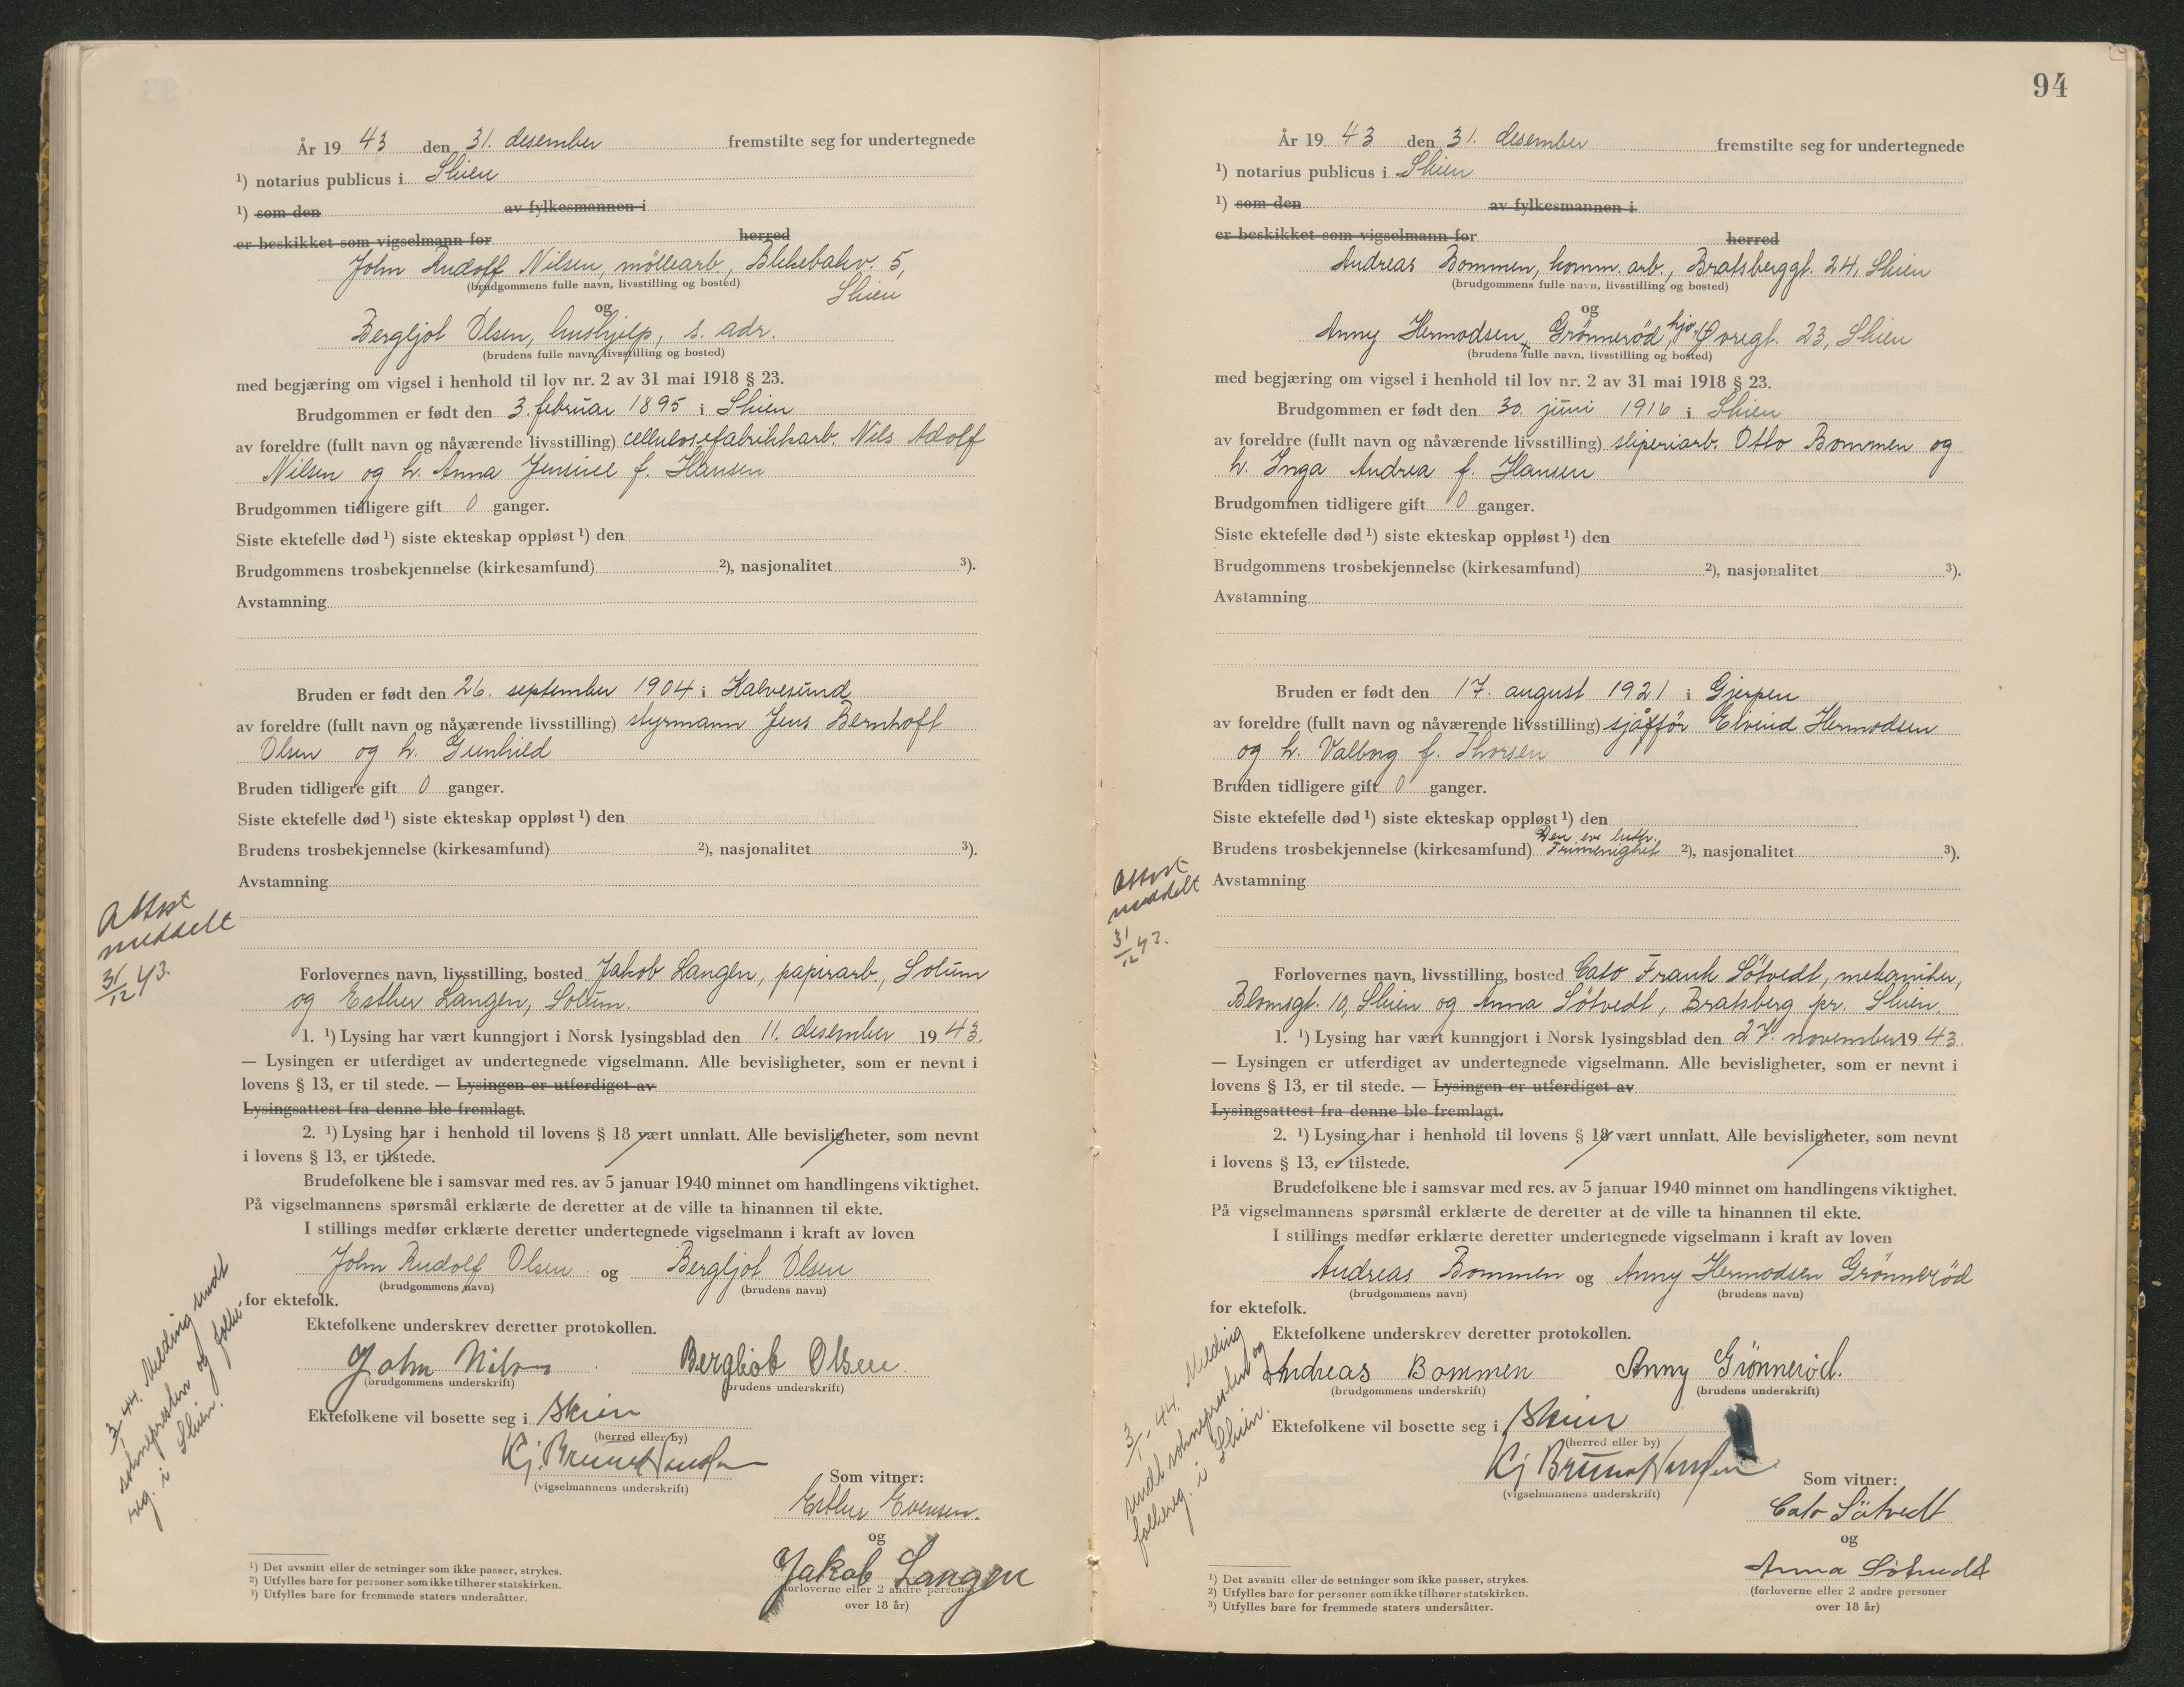 År 19 43 den 31. desember fremstilte seg for undertegnede
¹) notarius publicus i Skien
¹) som den av fylkesmannen i
er beskikket som vigselmann for herred
John Rudolf Nilsen, möllearb., Blekebakv. 5,
(brudgommens fulle navn, livsstilling og bosted)
Skien
og
Bergljot Olsen, hushjelp, s. adr.
(brudens fulle navn, livsstilling og bosted)
med begjæring om vigsel i henhold til lov nr. 2 av 31 mai 1918 § 23.
Brudgommen er født den 3. februar 1895 i Skien
av foreldre (fullt navn og nåværende livsstilling) cellulosefabrikkarb. Nils Adolf
Nilsen og h. Anna Jensine f. Hansen
Brudgommen tidligere gift 0 ganger.
Siste ektefelle død ¹) siste ekteskap oppløst ¹) den
Brudgommens trosbekjennelse (kirkesamfund) ²), nasjonalitet ³).
Avstamning
Bruden er født den 26. september 1904 i Kalvesund
av foreldre (fullt navn og nåværende livsstilling) styrmann Jens Bernhoft
Olsen og h. Gunhild
Bruden tidligere gift 0 ganger.
Siste ektefelle død ¹) siste ekteskap oppløst ¹) den
Brudens trosbekjennelse (kirkesamfund) ²), nasjonalitet ³).
Avstamning
Attest
meddelt
31/12 43.
Forlovernes navn, livsstilling, bosted Jakob Langen, papirarb., Solum
og Esther Langen, Solum.
1. ¹) Lysing har vært kunngjort i Norsk lysingsblad den 11. desember 19 43.
— Lysingen er utferdiget av undertegnede vigselmann. Alle bevisligheter, som er nevnt i
lovens § 13, er til stede. — Lysingen er utferdiget av
Lysingsattest fra denne ble fremlagt.
2. ¹) Lysing har i henhold til lovens § 18 vært unnlatt. Alle bevisligheter, som nevnt
i lovens § 13, er tilstede.
Brudefolkene ble i samsvar med res. av 5 januar 1940 minnet om handlingens viktighet.
På vigselmannens spørsmål erklærte de deretter at de ville ta hinannen til ekte.
I stillings medfør erklærte deretter undertegnede vigselmann i kraft av loven
John Rudolf Olsen og Bergljot Olsen
(brudgommens navn) (brudens navn)
for ektefolk.
Ektefolkene underskrev deretter protokollen.
John Nilsen Bergliot Olsen
(brudgommens underskrift) (brudens underskrift)
Ektefolkene vil bosette seg i Skien
(herred eller by)
Kj Bruun Hansen
(vigselmannens underskrift)
Som vitner:
Esther Evensen.
og
Jakob Langen
(forloverne eller 2 andre personer
over 18 år)
3/1 44. Melding sendt
soknepresten og folke-
reg. i Skien.
¹) Det avsnitt eller de setninger som ikke passer, strykes.
²) Utfylles bare for personer som ikke tilhører statskirken.
³) Utfylles bare for fremmede staters undersåtter.
94
År 19 43 den 31. desember fremstilte seg for undertegnede
¹) notarius publicus i Skien
¹) som den av fylkesmannen i
er beskikket som vigselmann for herred
Andreas Bommen, komm. arb., Bratsberggt. 24, Skien
(brudgommens fulle navn, livsstilling og bosted)
og
Anny Hermodsen Grönneröd, hjv. Øvregt. 23, Skien
(brudens fulle navn, livsstilling og bosted)
med begjæring om vigsel i henhold til lov nr. 2 av 31 mai 1918 § 23.
Brudgommen er født den 30. juni 1916 i Skien
av foreldre (fullt navn og nåværende livsstilling) sliperiarb. Otto Bommen og
h. Inga Andrea f. Hansen
Brudgommen tidligere gift 0 ganger.
Siste ektefelle død ¹) siste ekteskap oppløst ¹) den
Brudgommens trosbekjennelse (kirkesamfund) ²), nasjonalitet ³).
Avstamning
Bruden er født den 17. august 1921 i Gjerpen
av foreldre (fullt navn og nåværende livsstilling) sjåfför Eivind Hermodsen
og h. Valborg f. Thorsen
Bruden tidligere gift 0 ganger.
Siste ektefelle død ¹) siste ekteskap oppløst ¹) den
Den ev. luth.
Brudens trosbekjennelse (kirkesamfund) Frimenighet ²), nasjonalitet ³).
Avstamning
Attest
meddelt
31/12 43.
Forlovernes navn, livsstilling, bosted Cato Frank Sötvedt, mekaniker,
Blomsgt. 10, Skien og Anna Sötvedt, Bratsberg pr. Skien.
1. ¹) Lysing har vært kunngjort i Norsk lysingsblad den 27. november 19 43.
— Lysingen er utferdiget av undertegnede vigselmann. Alle bevisligheter, som er nevnt i
lovens § 13, er til stede. — Lysingen er utferdiget av
Lysingsattest fra denne ble fremlagt.
2. ¹) Lysing har i henhold til lovens § 18 vært unnlatt. Alle bevisligheter, som nevnt
i lovens § 13, er tilstede.
Brudefolkene ble i samsvar med res. av 5 januar 1940 minnet om handlingens viktighet.
På vigselmannens spørsmål erklærte de deretter at de ville ta hinannen til ekte.
I stillings medfør erklærte deretter undertegnede vigselmann i kraft av loven
Andreas Bommen og Anny Hermodsen Grönneröd
(brudgommens navn) (brudens navn)
for ektefolk.
Ektefolkene underskrev deretter protokollen.
Andreas Bommen Anny Grönneröd.
(brudgommens underskrift) (brudens underskrift)
Ektefolkene vil bosette seg i Skien
(herred eller by)
Kj Bruun Hansen
(vigselmannens underskrift)
Som vitner:
Cato Sötvedt
og
Anna Sötvedt
(forloverne eller 2 andre personer
over 18 år)
3/1 - 44. Melding
sendt soknepresten og
folkereg. i Skien.
¹) Det avsnitt eller de setninger som ikke passer, strykes.
²) Utfylles bare for personer som ikke tilhører statskirken.
³) Utfylles bare for fremmede staters undersåtter.